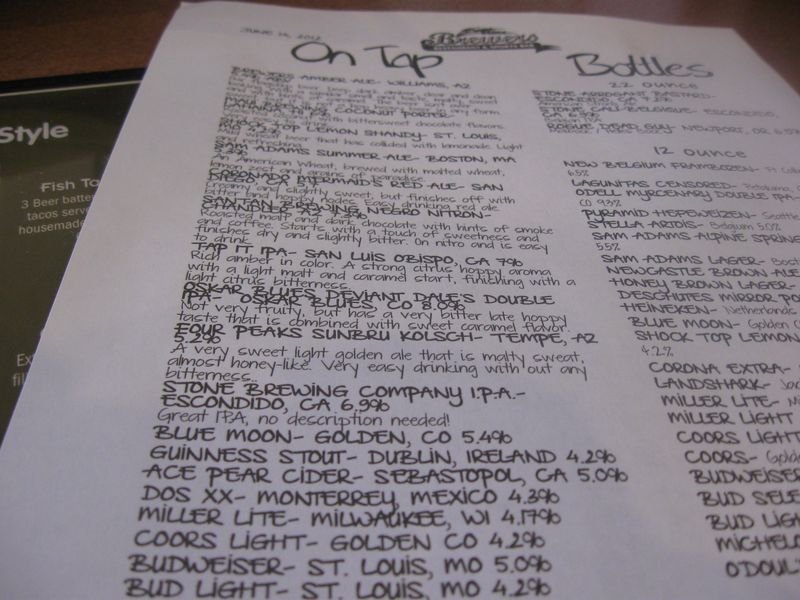 JUNE 14, 2012
Brewers
On Tap
AMBER ALE- WILLIAMS, AZ
COCONUT PORTER-
bittersweet chocolate flavors.
TOP LEMON SHANDY- ST. LOUIS,
beer that has collided with lemonade. Light
SAM ADAMS SUMMER ALE- BOSTON, MA
An American Wheat, brewed with malted wheat,
lemon zest and grains of paradise.
MERMAID'S RED ALE- SAN
Creamy and slightly sweet, but finishes off with
Easy drinking red ale.
NEGRO NITRON-
Roasted malt and dark chocolate with hints of smoke
and coffee. Starts with a touch of sweetness and
finishes dry and slightly bitter. On nitro and is easy
to drink.
TAP IT IPA- SAN LUIS OBISPO, CA 7%
Rich amber in color. A strong citrus hoppy aroma
with a light malt and caramel start, finishing with a
light citrus bitterness.
OSKAR BLUES DEVIANT DALE'S DOUBLE
IPA- OSKAR BLUES, CO 8.0%
Not very fruity, but has a very bitter late hoppy
taste that is combined with sweet caramel flavor.
FOUR PEAKS SUNBRU KOLSCH- TEMPE, AZ
5.2%
A very sweet light golden ale that is malty sweat,
almost honey-like. Very easy drinking with out any
bitterness..
STONE BREWING COMPANY I.P.A.-
ESCONDIDO, CA 6.9%
Great IPA, no description needed!
BLUE MOON- GOLDEN, CO 5.4%
GUINNESS STOUT- DUBLIN, IRELAND 4.2%
ACE PEAR CIDER- SEBASTOPOL, CA 5.0%
DOS XX- MONTERREY, MEXICO 4.3%
MILLER LITE- MILWAUKEE, WI 4.17%
COORS LIGHT- GOLDEN CO 4.2%
BUDWEISER- ST. LOUIS, MO 5.0%
BUD LIGHT- ST. LOUIS, MO 4.2%
Bottles
22 OUNCE
STONE ARROGANT BASTARD-
ESCONDIDO, CA 7.2%
STONE CALI-BELGIQUE- ESCONDIDO,
CA 6.9%
ROGUE, DEAD GUY- NEWPORT, OR
12 OUNCE
NEW BELGIUM FRAMBOZEN- Ft. Coll
6.5%
LAGUNITAS CENSORED- Petaluma,
ODELL MYRCENARY DOUBLE IPA-
CO 9.3%
PYRAMID HEFEWEIZEN- Seattle
STELLA ARTOIS- Belgium 5.0%
SAM ADAMS ALPINE SPRING
5.5%
SAM ADAMS LAGER- Bost
NEWCASTLE BROWN ALE
HONEY BROWN LAGER-
DESCHUTES MIRROR PO
HEINEKEN- Netherlands
BLUE MOON- Golden C
SHOCK TOP LEMON
4.2%
CORONA EXTRA-
LANDSHARK- Ja
MILLER LITE- Mi
MILLER LIGHT
COORS LIGHT
COORS- Gold
BUDWEISE
BUD SELE
BUD LIG
MICHELO
O'DOUL'
Style
Fish Ta
3 Beer batte
tacos serve
housemade
Ex
fil